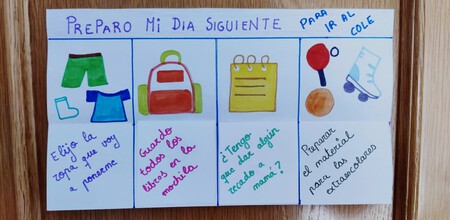 PREPARO MI DIA SIGUIENTE
PARA
IR AL
COLE
Elijo la
ropa que voy
a ponerme
Guardo
todos los
libros en la
mochila
¿Tengo
que dar algún
recado a
mamá?
Preparar
el material
para las
extraescolares